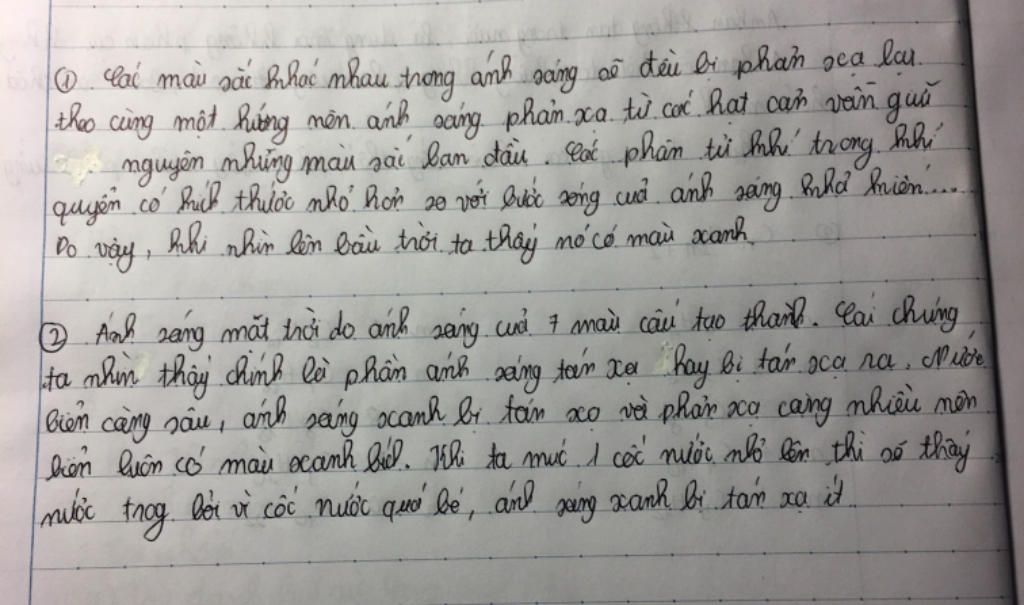 ① Các màu sắc khác nhau trong ánh sáng sẽ đều bị phản xạ lại
theo cùng một hướng nên ánh sáng phản xạ từ các hạt cản vẫn giữ
nguyên những màu sắc ban đầu. Các phân tử khí trong khí
quyển có kích thước nhỏ hơn so với bước sóng của ánh sáng khả kiến...
Do vậy, khi nhìn lên bầu trời ta thấy nó có màu xanh
② Ánh sáng mặt trời do ánh sáng của 7 màu cấu tạo thành. Cái chúng
ta nhìn thấy chính là phần ánh sáng tán xạ hay bị tán xạ ra. Nước
biển càng sâu, ánh sáng xanh bị tán xạ và phản xạ càng nhiều nên
biển luôn có màu xanh biếc. Khi ta múc 1 cốc nước nhỏ lên thì sẽ thấy
nước trog bởi vì cốc nước quá bé, ánh sáng xanh bị tán xạ ít